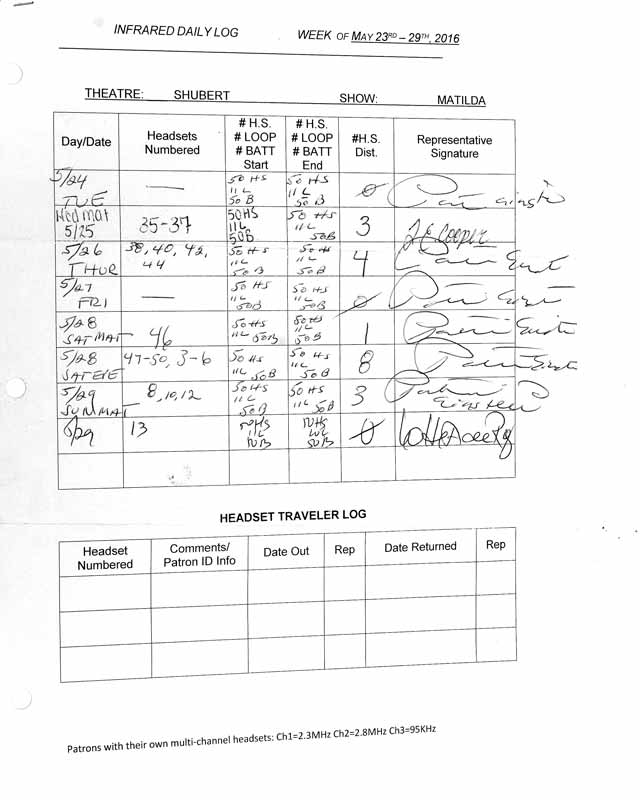 INFRARED DAILY LOG WEEK OF MAY 23RD – 29TH, 2016
THEATRE: SHUBERT SHOW: MATILDA
Day/Date Headsets Numbered # H.S. # LOOP # BATT Start # H.S. # LOOP # BATT End #H.S. Dist. Representative Signature
5/24 TUE — 50 HS 11 L 50 B 50 HS 11 L 50 B 0
Wed mat 5/25 35-37 50HS 11L 50B 50 HS 11L 50B 3 J C Cooper
5/26 THUR 38, 40, 42, 44 50 HS 11L 50 B 50 HS 11L 50B 4
5/27 FRI — 50 HS 11L 50B 50 HS 11L 50B 0
5/28 SAT MAT 46 50HS 11L 50B 50HS 11L 50B 1
5/28 SAT EVE 47-50, 3-6 50 HS 11L 50B 50 HS 11L 50B 8
5/29 SUN MAT 8, 10, 12 50 HS 11L 50B 50 HS 11L 50B 3
5/29 13 50HS 11L 50B 50HS 50B 0
HEADSET TRAVELER LOG
Headset Numbered Comments/ Patron ID Info Date Out Rep Date Returned Rep
Patrons with their own multi-channel headsets: Ch1=2.3MHz Ch2=2.8MHz Ch3=95KHz